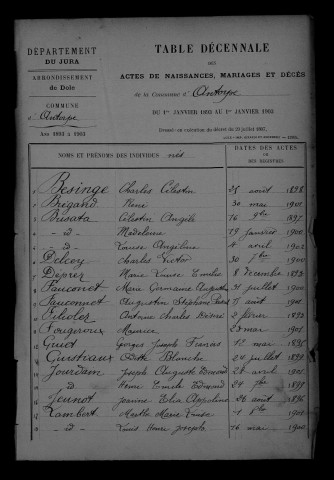 DÉPARTEMENT
DU JURA
ARRONDISSEMENT
de Dole
COMMUNE
d'Antorpe
Ans 1893 à 1903
TABLE DÉCENNALE
DES
ACTES DE NAISSANCES, MARIAGES ET DÉCÈS
de la Commune d'Antorpe
DU 1er JANVIER 1893 AU 1er JANVIER 1903
Dressé en exécution du décret du 20 juillet 1807.
NOMS ET PRÉNOMS DES INDIVIDUS nés
DATES DES ACTES
OU
DES REGISTRES
Besinge Charles Célestin 25 août 1898
Brégand René 30 mai 1901
Busata Célestin Angèle 16 9bre 1897
- id Madeleine 19 janvier 1900
- id Louise Angéline 4 avril 1902
Delcey Charles Victor 30 7bre 1900
Deprez Marie Louise Emilie 8 décembre 1893
Fauconet Marie Germaine 31 juillet 1900
Fauconnet Augustin Stéphane août 1901
Antoine Charles Désiré 2 février 1893
Fougeroux Maurice 23 mai 1901
Guiot Georges Joseph 12 mai 1896
Blanche 24 juillet
Jourdain Joseph Auguste Edmond 28 avril 1901
id Henri Emile Edmond 24 7bre 1899
Jeunot Jeanne Elia Appoline 26 août 1896
Lambert Marthe Marie Louise
id Louis Henri Joseph 16 mai 1902